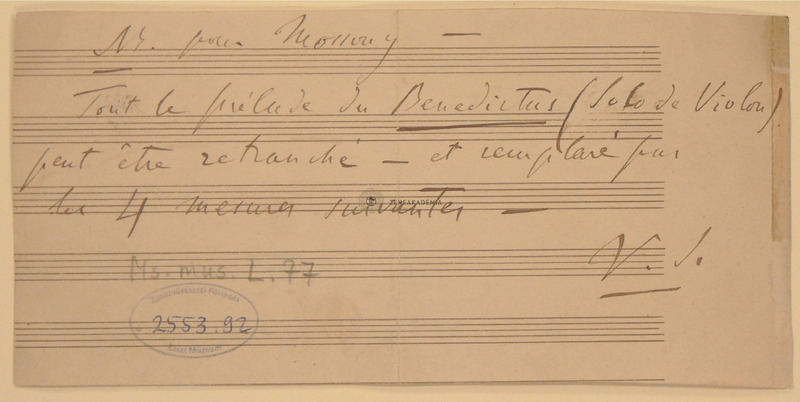 NB. pour Mosonyi —
Tout le prélude du Benedictus (Solo de Violon)
peut être retranché — et remplacé par
les 4 mesures suivantes —
ZENEAKADÉMIA
V. S.
Ms. mus. L. 77
2553.92
Liszt Múzeum